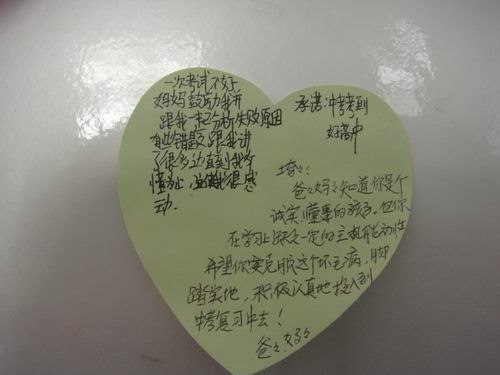 一次考试不好
妈妈鼓励我并
跟我一起分析失败原因
有些错题跟我讲
了很多边直到我
懂为止,这让我很感
动.
承诺:中考考到
好高中
琦々:
爸々妈々知道你是个
诚实、懂事的孩子。但你
在学习上缺乏一定的主观能动性
希望你要克服这个坏毛病,脚
踏实地,积极认真地投入到
中考复习中去!
爸々.妈々